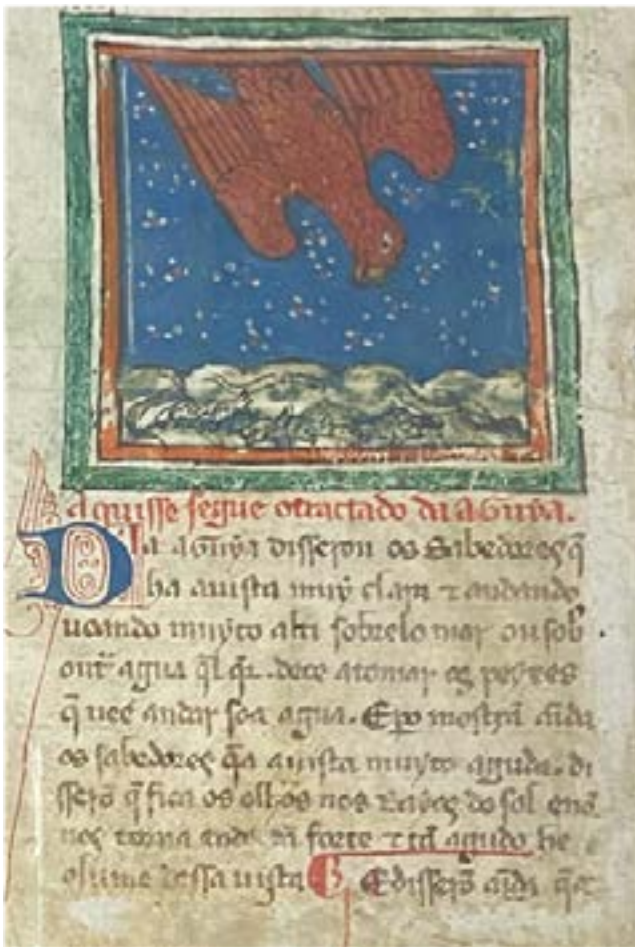 aquisse segue otractado da aguya.
Da aguya disseron os sabedores q̃
ha a uista muy clara ⁊ andando
uoando muyto alta sobrelo mar ou sob
out̃ agua q̃l q̃r. dece a tomar os peyxes
q̃ uee andar soa agua. E mostrã aĩda
os sabedores q̃ a uista muyto aguda. di
sserõ q̃ fica os olhos nos rayos do sol
forte ⁊ tã agudo he
olume dessa uista E disserõ aĩda q̃ a